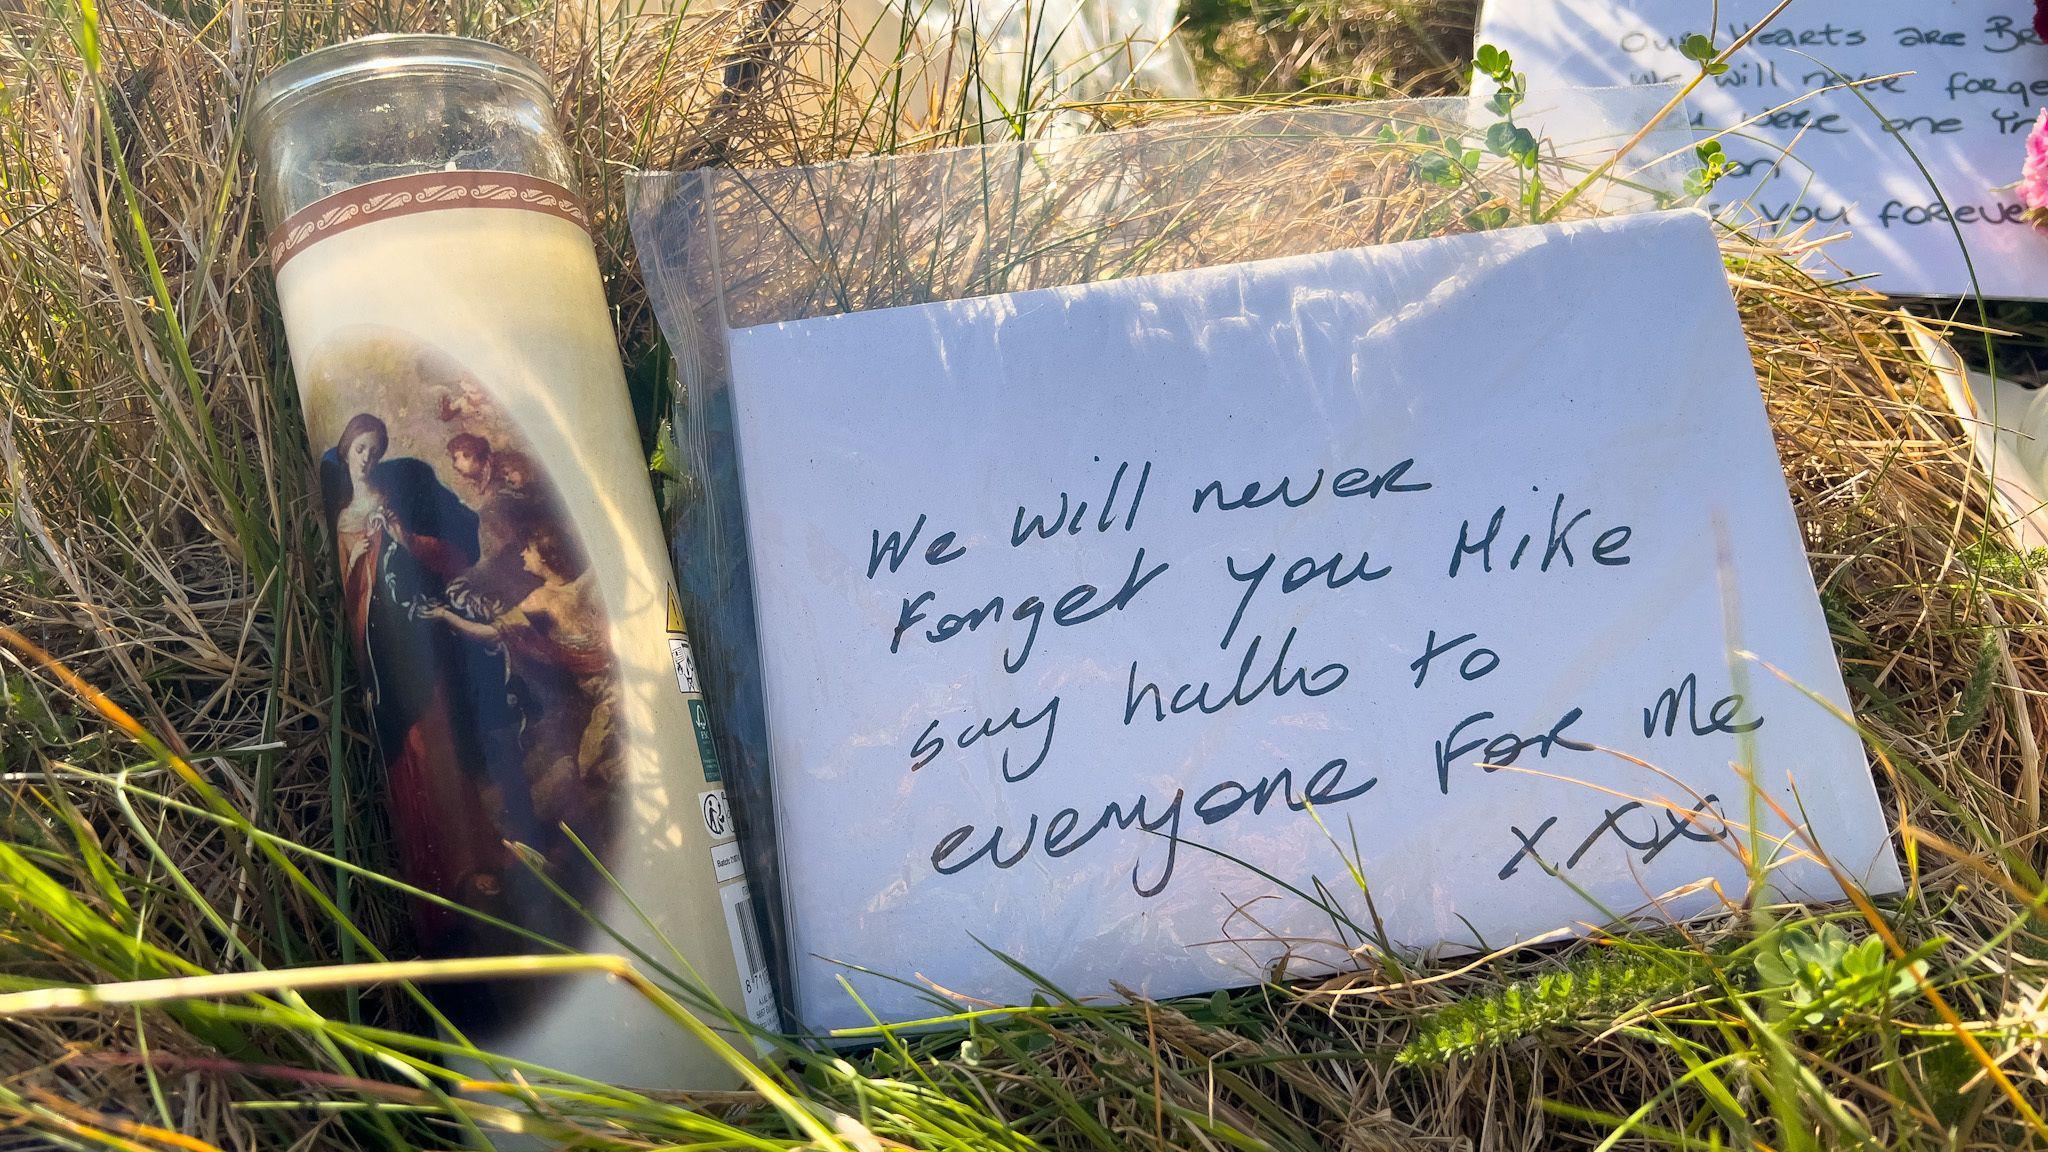 Our Hearts are
We will never forge
were one in
You forever
We will never
Forget you Mike
say hallo to
everyone For Me
xxxx
FSC
Batch:
8"71